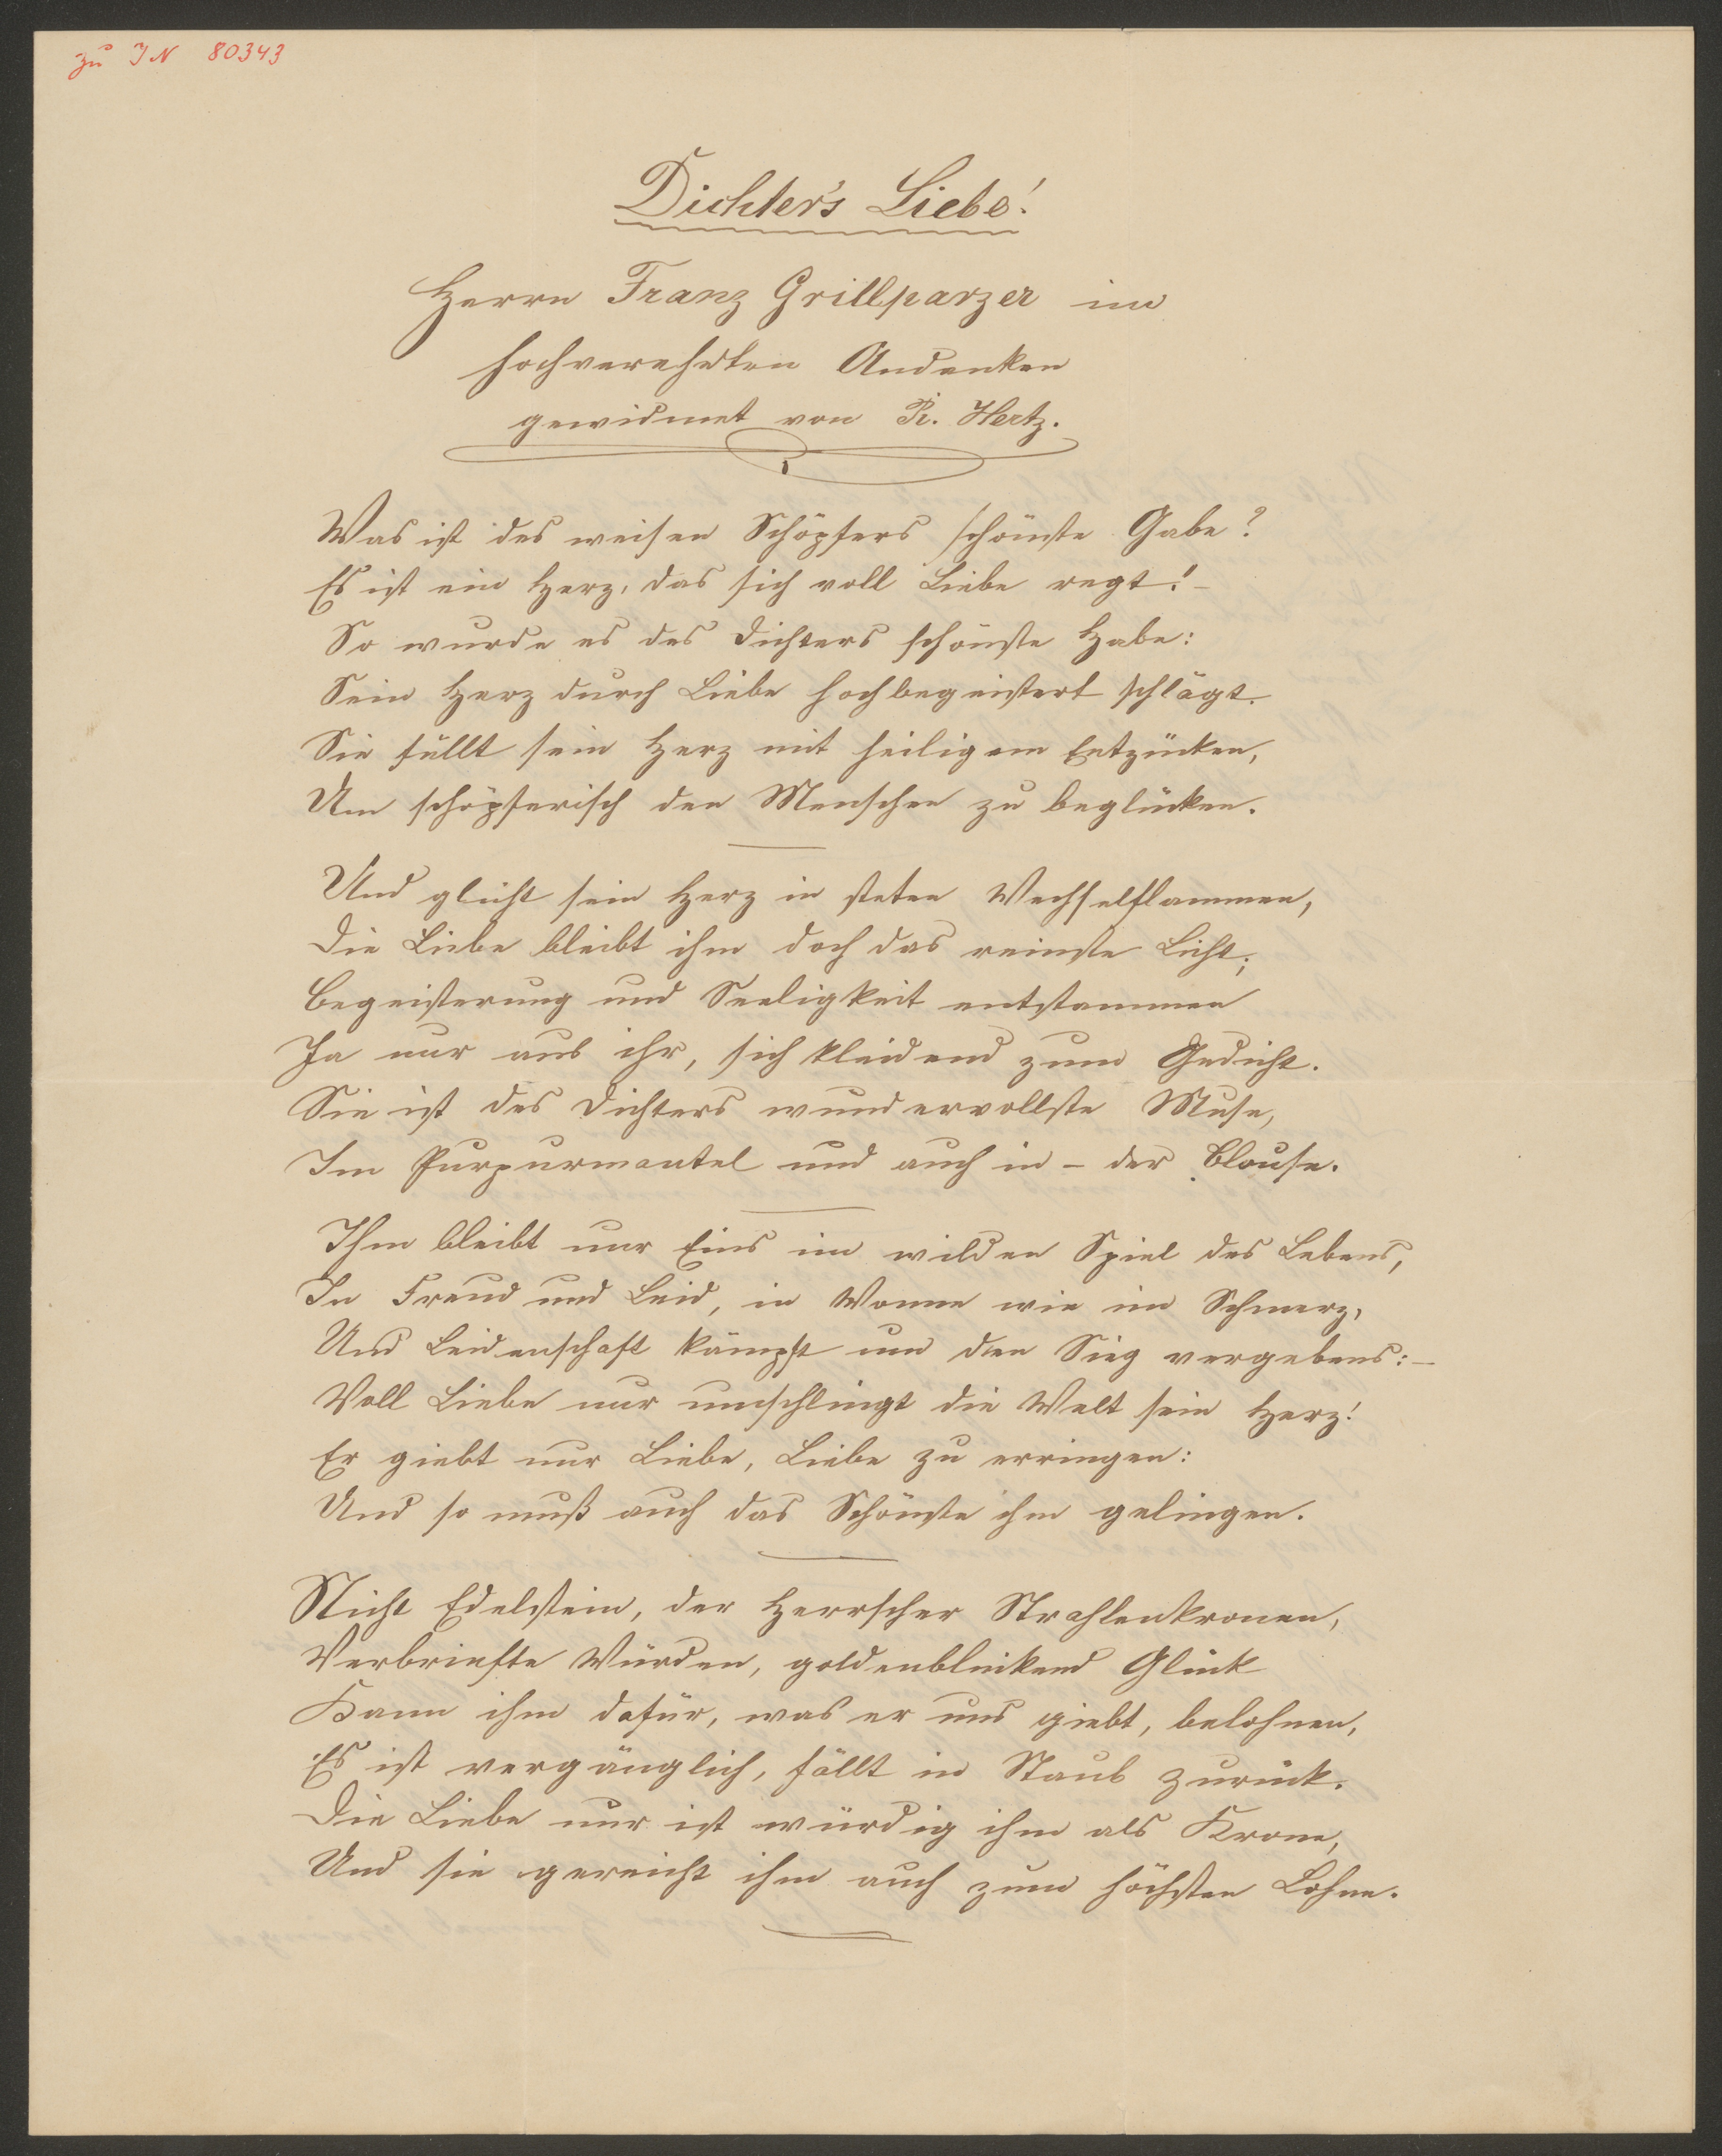 zu IN 80343
Dichter's Liebe!
Herrn Franz Grillparzer im
hochverehrten Andenken
gewidmet von R. Hertz.
Was ist des weisen Schöpfers schönste Gabe?
Es ist ein Herz, das sich voll Liebe regt! –
So wurde es des Dichters schönste Habe:
Sein Herz durch Liebe hochbegeistert schlägt.
Sie füllt sein Herz mit heiligem Entzücken,
Um schöpferisch den Menschen zu beglücken.
Und glüht sein Herz in steten Wechselflammen,
Die Liebe bleibt ihm doch das reinste Licht;
Begeisterung und Seeligkeit entstammen
Ja nur aus ihr, sich kleidend zum Gedicht.
Sie ist des Dichters wundervollste Muse,
Im Purpurmantel und auch in – der Blouse.
Ihm bleibt nur Eins im wilden Spiel des Lebens,
In Freud und Leid, in Wonne wie im Schmerz,
Und Leidenschaft kämpft um den Sieg vergebens: –
Voll Liebe nur umschlingt die Welt sein Herz!
Er giebt nur Liebe, Liebe zu erringen:
Und so muß auch das Schönste ihm gelingen.
Nicht Edelstein, der Herrscher Strahlenkronen,
Verbriefte Würden, goldenblinkend Glück
Kann ihm dafür, was er uns giebt, belohnen,
Es ist vergänglich, fällt in Staub zurück.
Die Liebe nur ist würdig ihm als Krone,
Und sie gereicht ihm auch zum höchsten Lohne.